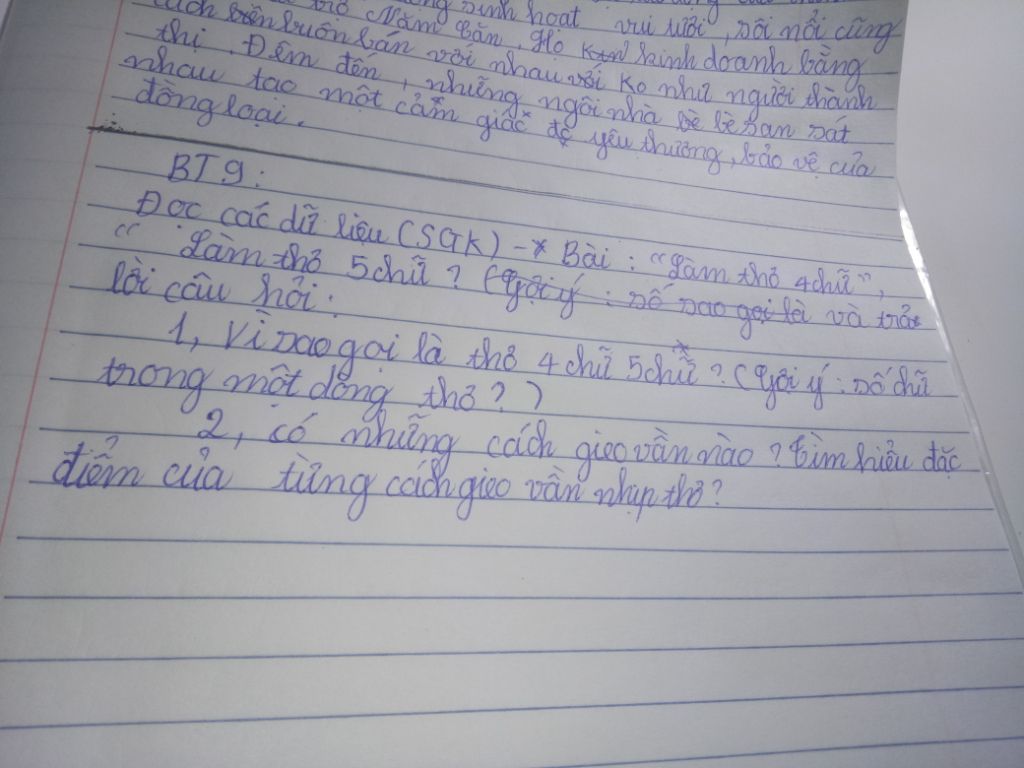 sinh hoạt vui tươi, sôi nổi cũng
cách buôn bán Năm Căn. Họ kinh doanh bằng
thị. Đêm đến, với nhau với ko như người thành
nhau tạo một cảm những ngôi nhà bè san sát
đồng loại. giác để yêu thương, bảo vệ của
BT9:
Đọc các dữ liệu (SGK) -* Bài: "Làm thơ 4 chữ",
" Làm thơ 5 chữ? (Gợi ý: số sao gọi là và trả
lời câu hỏi:
1, Vì sao gọi là thơ 4 chữ 5 chữ? (Gợi ý: số chữ
trong một dòng thơ?)
2, có những cách gieo vần nào? Tìm hiểu đặc
điểm của từng cách gieo vần nhịp thơ?